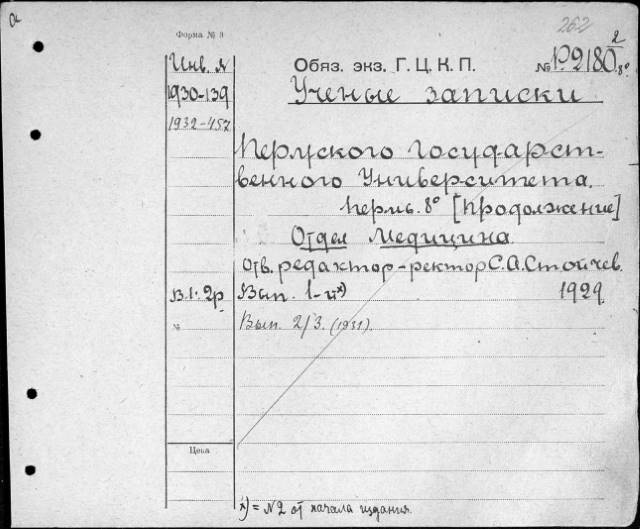 а
262
Форма № 3
2
Инв. №
Обяз. экз. Г. Ц. К. П.
№ 1º2180 8º
1930-139
Ученые записки
1932-457
Пермского Государст-
венного Университета.
Пермь. 8º [Продолжение]
Отдел Медицина.
Отв. редактор-ректор С.А.Стойчев.
В.1. 2р. Вып. 1-йˣ⁾ 1929.
№ Вып. 2/3. (1931).
Цена
х) = №2 от начала издания.